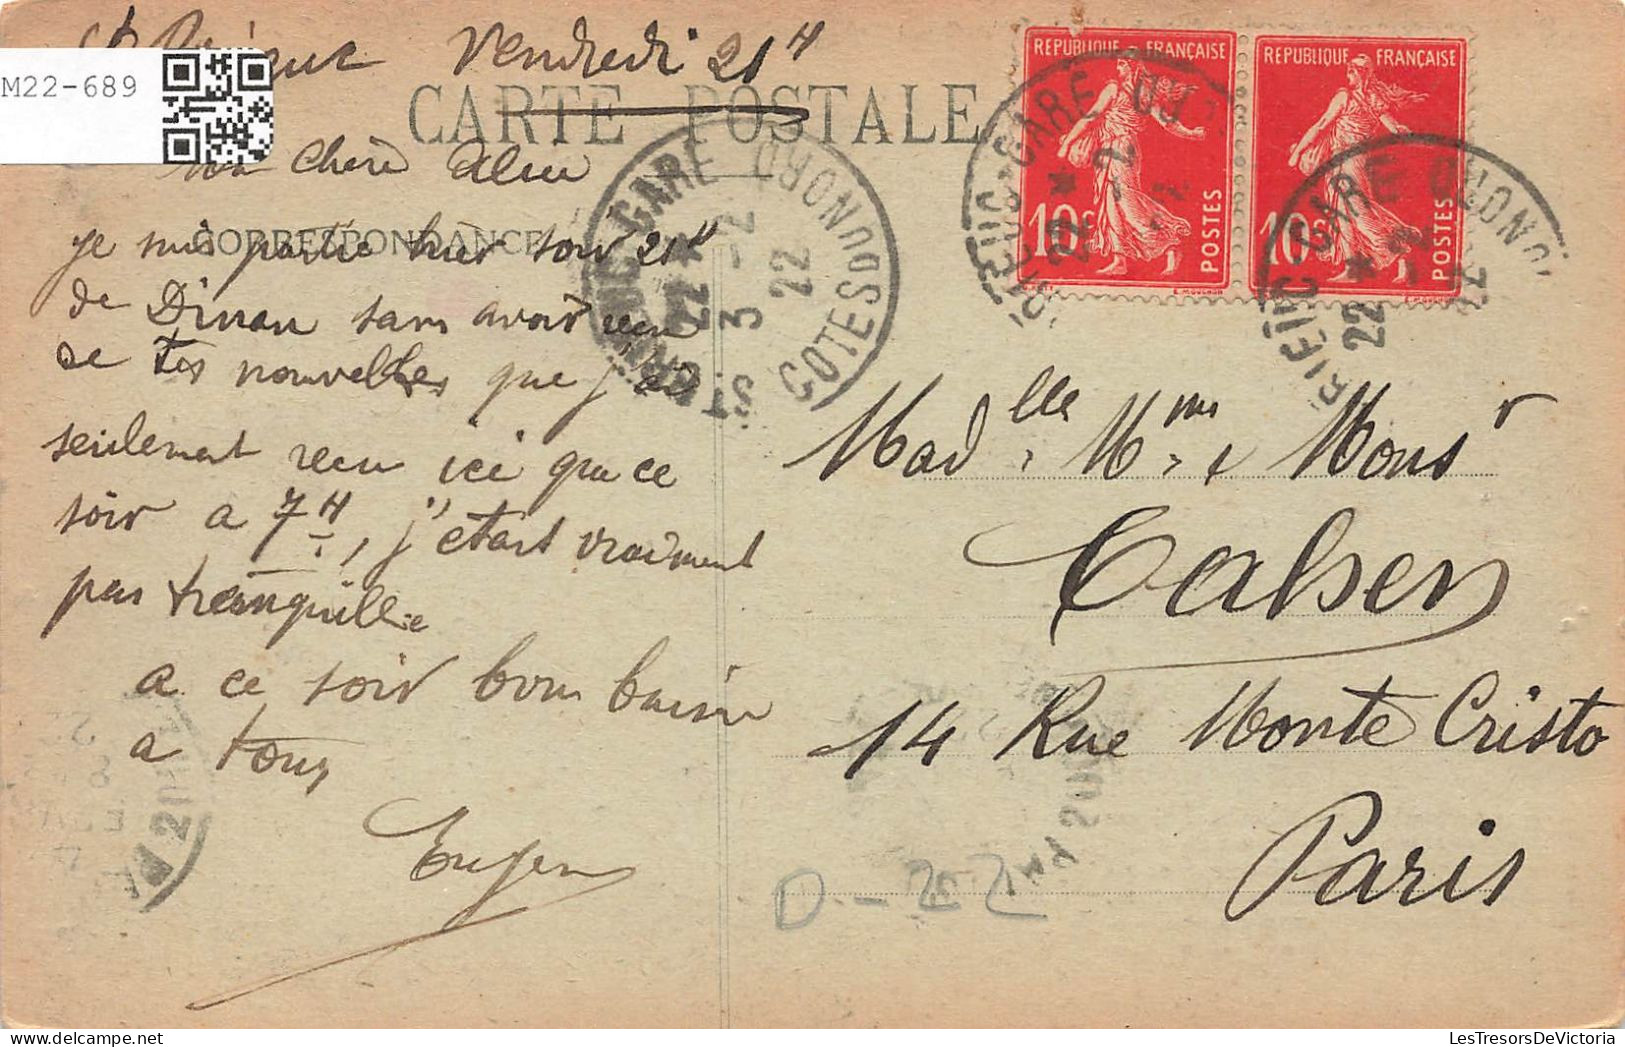 St Brieuc Vendredi 21H
M22-689
CARTE POSTALE
Ma Chère
CORRESPONDANCE
je suis partie hier soir 21H
de Dinan sans avoir recu
de tes nouvelles que j'ai
seulement recu ici que ce
soir a 7H, j'etait vraiment
pas tranquille
a ce soir bon baiser
a tous
Eugen
REPUBLIQUE FRANÇAISE
10c POSTES
REPUBLIQUE FRANÇAISE
10c POSTES
ST BRIEUC-GARE COTES DU NORD
22 * 3-2 22
Madelle, Mme, & Monsr
Calsen
14 Rue Monte Cristo
Paris
D-22
LesTresorsDeVictoria.com